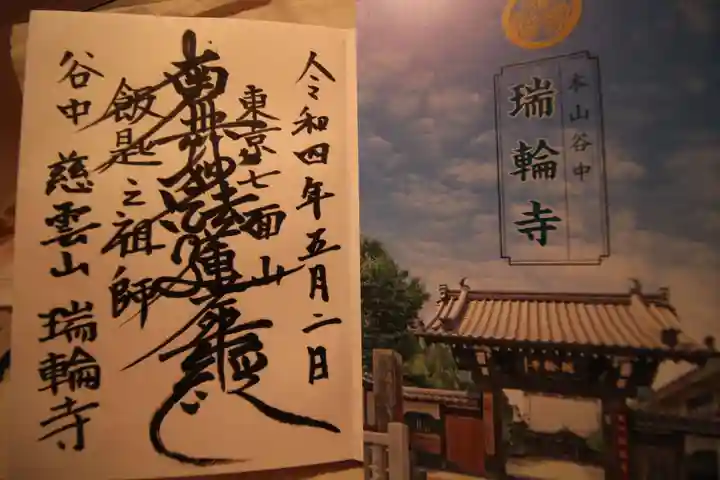 令和四年五月二日
東京七面山
南無妙法蓮華経
飯匙之祖師
谷中 慈雲山 瑞輪寺
本山谷中
瑞輪寺